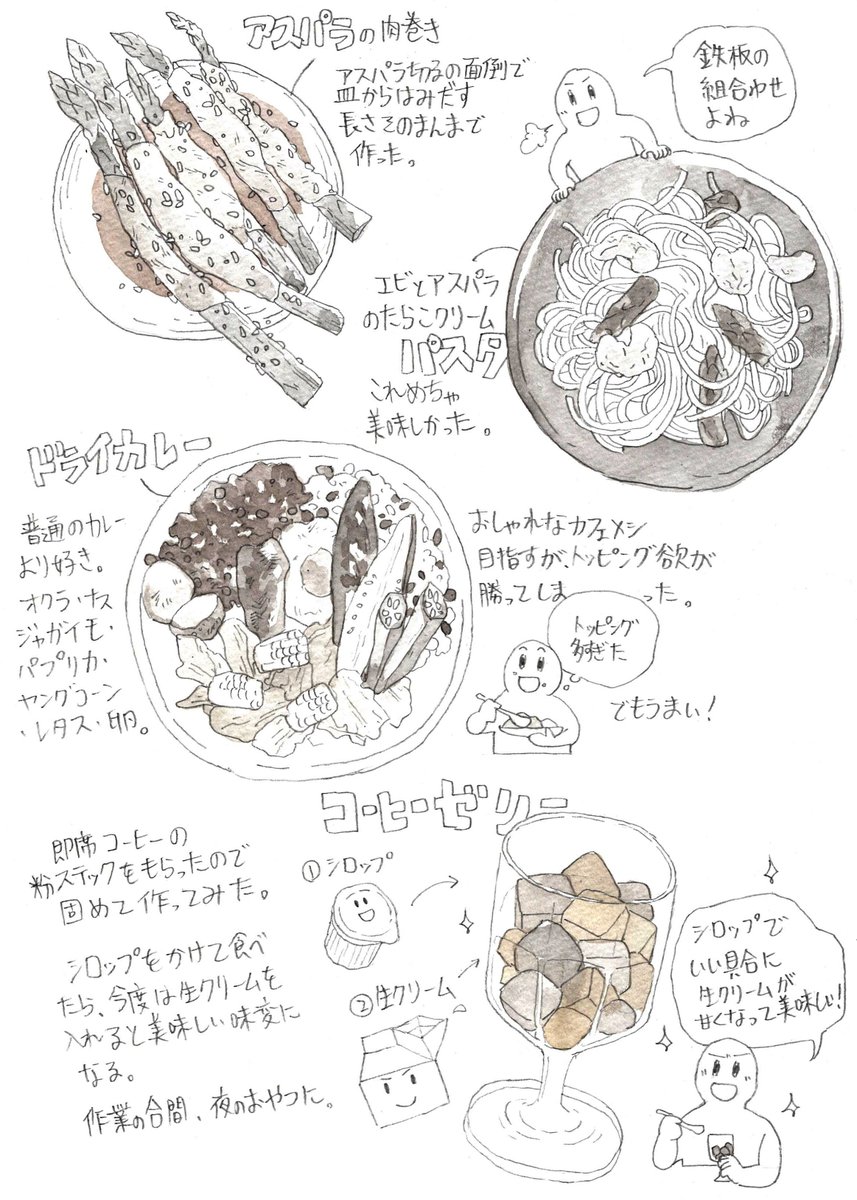 アスパラの肉巻き
アスパラ切るの面倒で
皿からはみだす
長さそのまんまで
作った。
鉄板の
組合わせ
よね
エビとアスパラ
のたらこクリーム
パスタ
これめちゃ
美味しかった。
ドライカレー
普通のカレー
より好き。
オクラ・ナス
ジャガイモ・
パプリカ・
ヤングコーン
・レタス・卵。
おしゃれなカフェメシ
目指すが、トッピング欲が
勝ってしまった。
トッピング
多すぎた
でもうまい!
コーヒーゼリー
即席コーヒーの
粉スティックをもらったので
固めて作ってみた。
シロップをかけて食べ
たら、今度は生クリームを
入れると美味しい味変に
なる。
作業の合間、夜のおやつた。
①シロップ
②生クリーム
シロップで
いい具合に
生クリームが
甘くなって美味しい!